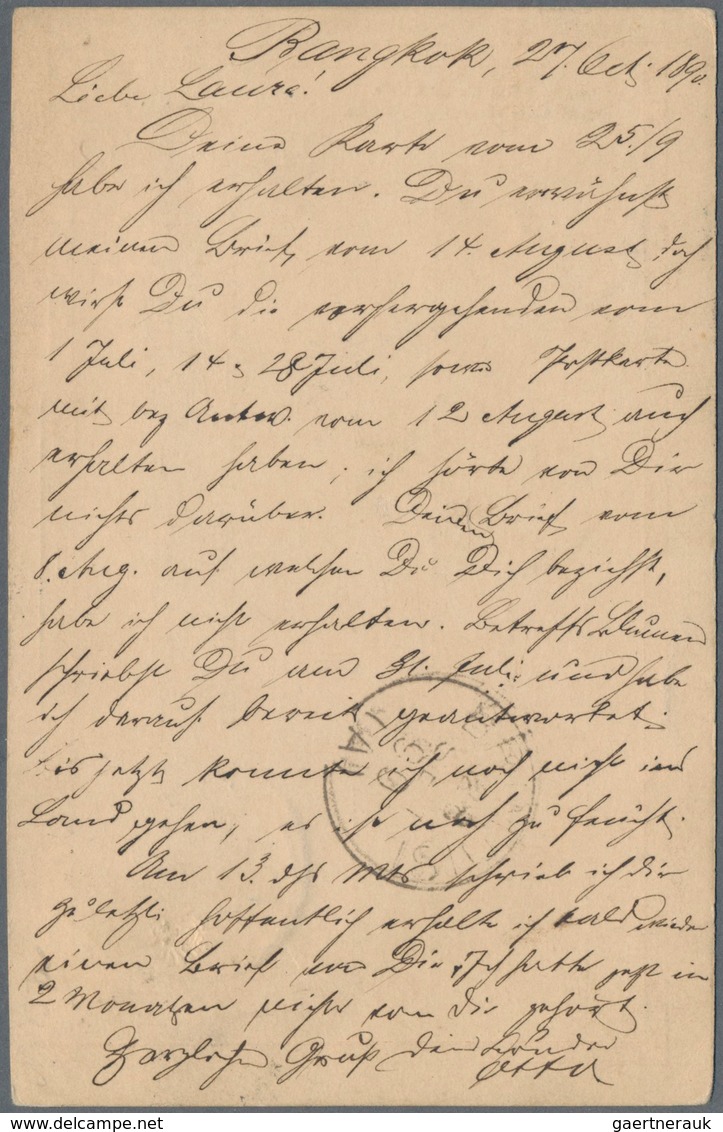 Bangkok, 27. Oct. 1890.
Liebe Laura!
Deine Karte vom 25./9
habe ich erhalten. Du erwähnst
meinen Brief vom 14. August, doch
wirst Du die vorhergehenden vom
1 Juli, 14 & 28 Juli, sowie Postkarte
mit bez Antw. vom 12 August auch
erhalten haben, ich hörte von Dir
nichts darüber. Deinen Brief vom
8. Aug. auf welchen Du Dich beziehst,
habe ich nicht erhalten. Betreffs Blumen
schriebst Du am 31. Juli und habe
ich darauf bereits geantwortet.
Bis jetzt konnte ich noch nicht ins
Land gehen, es ist noch zu feucht.
Am 13. dss Mts schrieb ich dir
zuletzt. Hoffentlich erhalte ich bald wieder
einen Brief von Dir. Ich hatte jetzt in
2 Monaten nichts von dir gehört.
Herzlichen Gruß dein Bruder
Otto
gaertnerauk